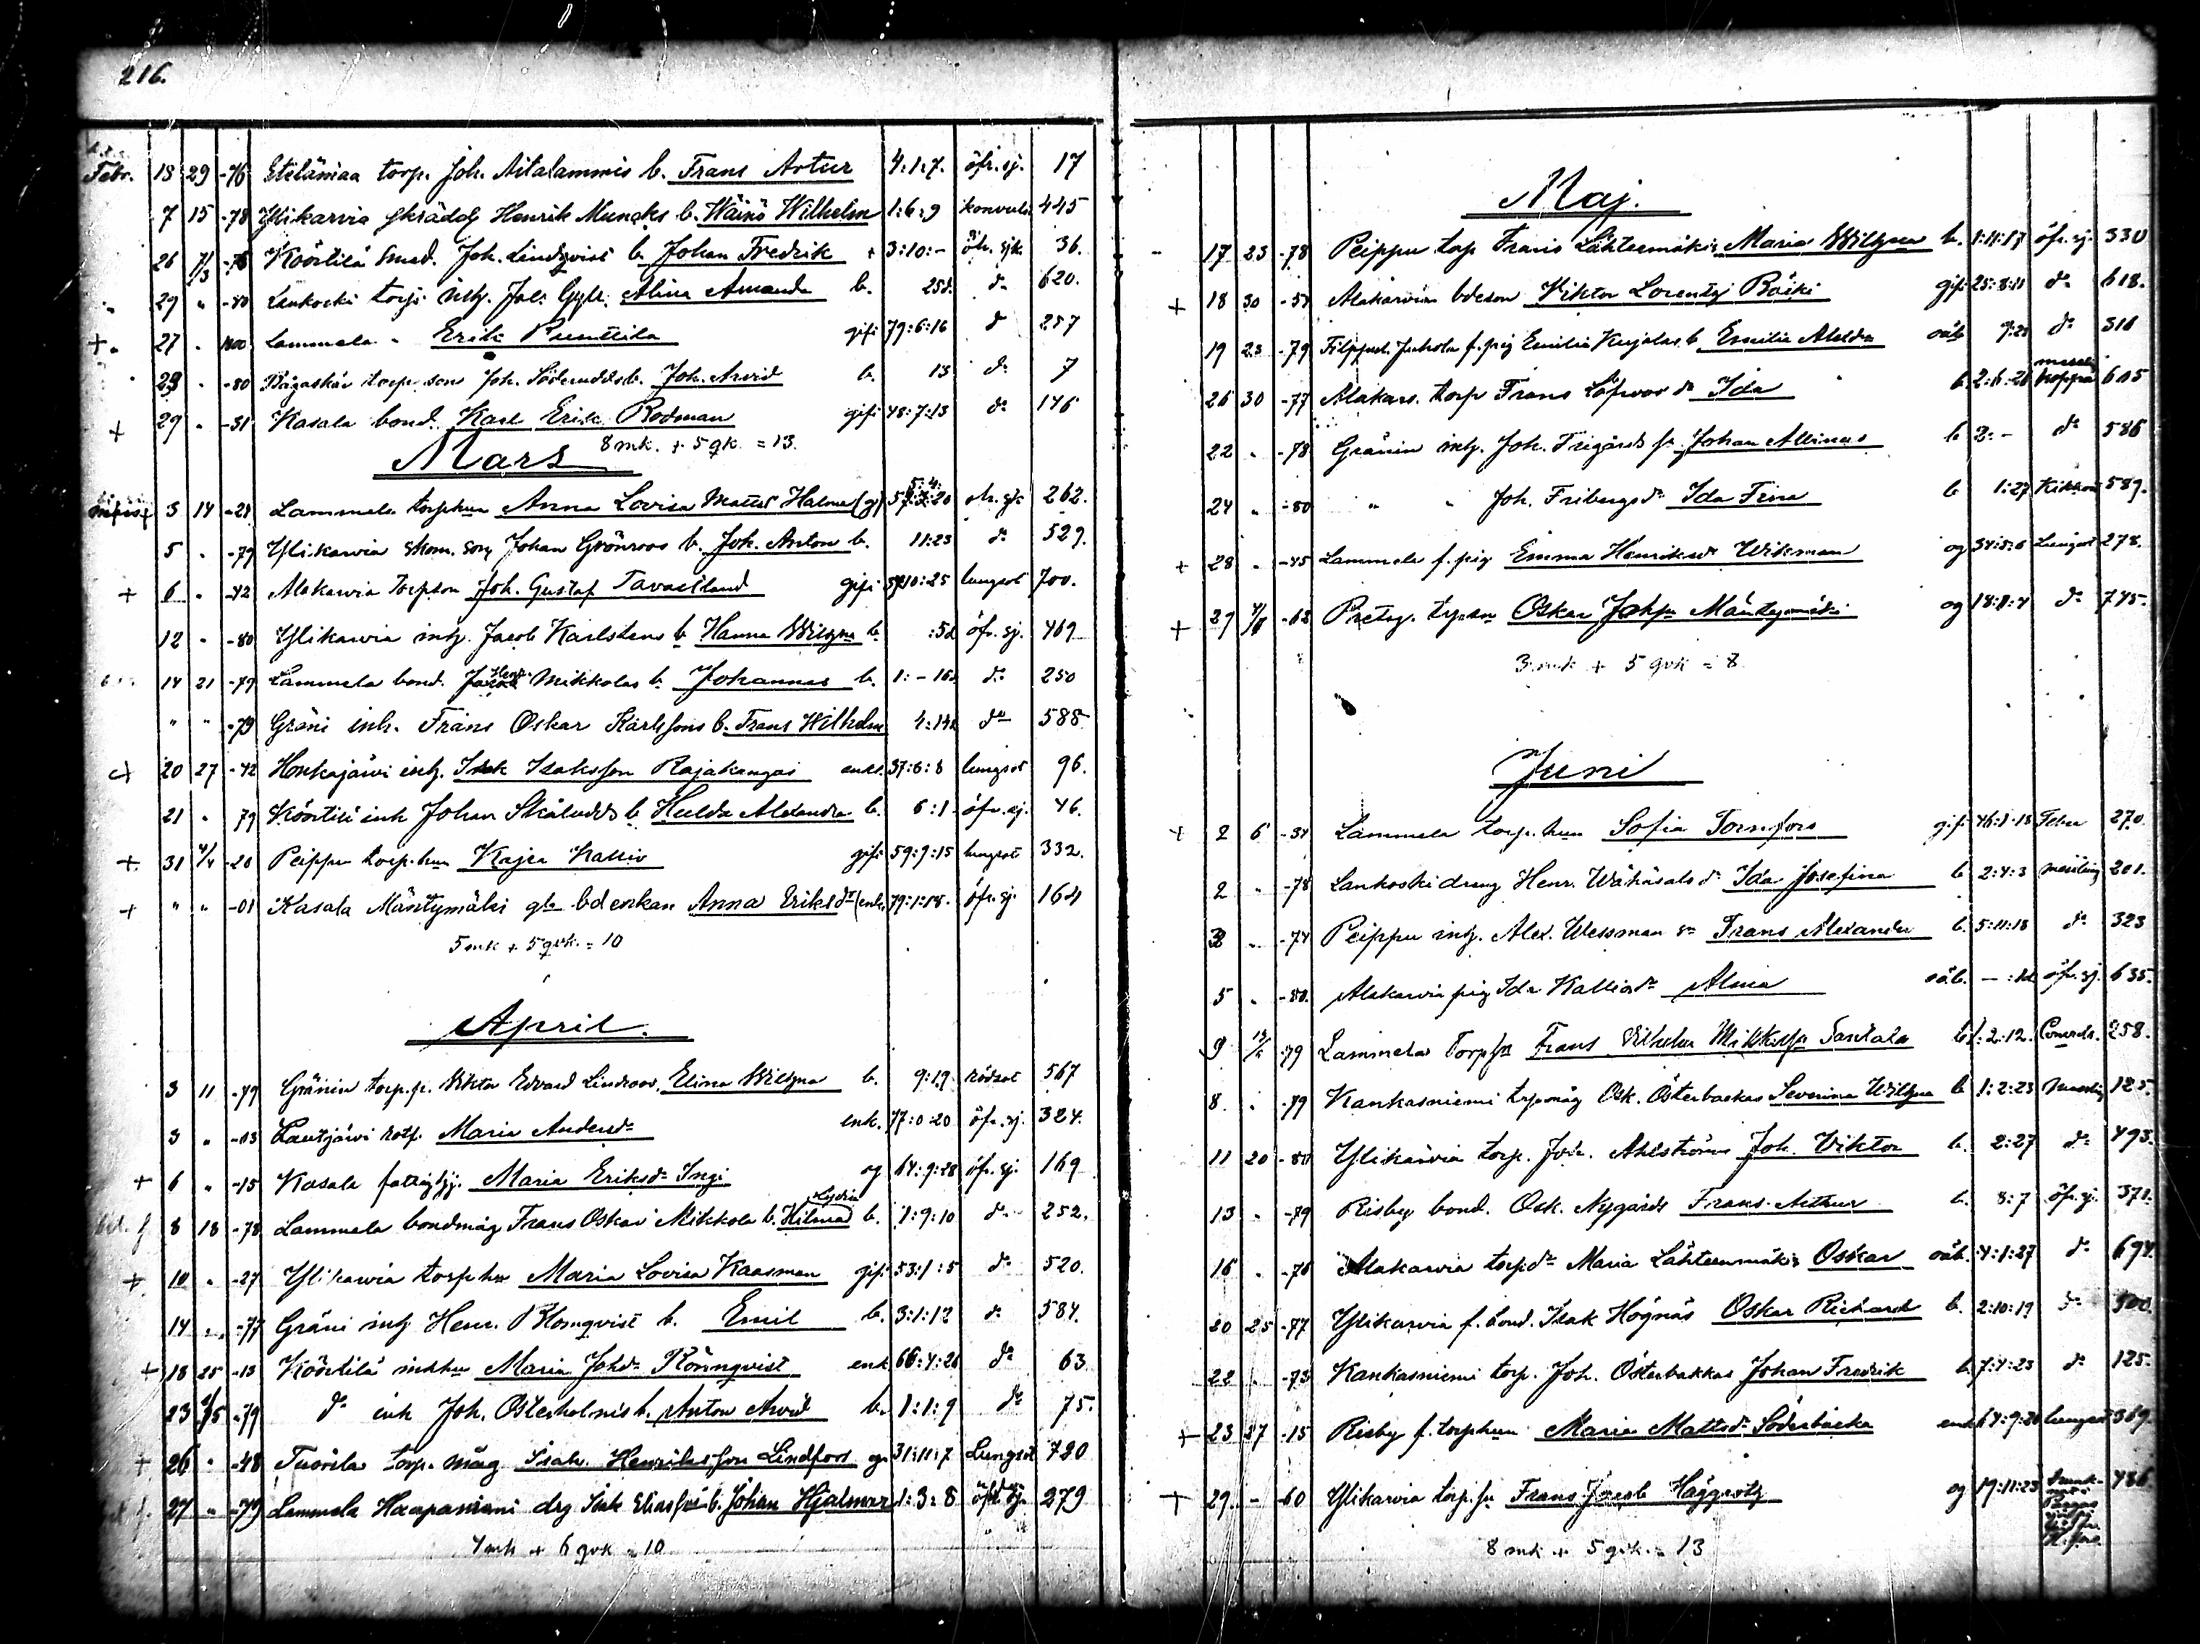 216.
Febr. 13 29 -76 Etelämaa torp. Joh. Aitalammis b. Frans Artur 4:1:7. öfr. sj. 17
7 15 -78 Ylikarvia Henrik b. Wäinö Wilhelm 1:6:9 konvuls. 445
26 7/3 -76 Köörtilä Smed. Joh. Lindqvist b. Johan Fredrik + 3:10:- öfr. sjk 36.
29 " -80 Lankoski torp. Alina Amanda b. 25d. do 620.
+ 27 " 1800 Lammela " Erik Punttila gift 79:6:16 do 257
29 " -80 torp. son Joh. Söderudds b. Joh. Arvid b. 13 do 7
+ 29 " -31 Kasala bond. Karl Erik Rodman gift 48:7:13 do 176
8 mk. + 5 qk. = 13.
Mars
3 14 Lammela torphu Anna Lovisa Halme (g) öfr. sjk 262.
5 " -79 Ylikarvia skom. son Johan Grönroos b. Joh. Anton b. 11:23 do 529.
+ 6 " -42 Alakarvia torpson Joh. Gustaf Tavastlund gift :10:25 lungsot 700.
12 " -80 Ylikarvia inh. Jacob Karlstens b. Hanna Wilhna b. :5d öfr. sj. 469
14 21 -79 Lammela bond. Henr. Mikkolas b. Johannes b. 1:-16d do 250
" " -79 Gräni inh. Frans Oskar Karlssons b. Frans Wilhelm 4:14d do 588
+ 20 27 -42 Honkajärvi inh. Isak Isaksson Rajakangas enkl. 37:6:8 lungsot 96.
21 " 79 Köörtilä inh Johan Skåludds b. Hulda Alexandra b. 6:1 öfr. sj. 46.
+ 31 4/4 -20 Peippu torp. hu Kajsa Kallio gift 59:9:15 lungsot 332.
+ " " -01 Kasala Mäntymäki gla bd enkan Anna Eriksdr (enk. 79:1:18. öfr. sj. 164
5 mk + 5 qvk. = 10
April.
3 11 -79 Gränin torp. p. Viktor Edvard Lindroos, Elina Wilhna b. 9:19 rödsot 567
3 " -03 Lautjärvi rotf. Maria Andersdr enk. 77:0:20 öfr. sj. 324.
+ 6 " -15 Kasala fattighj. Maria Eriksdr Ingi og 64:9:28 öfr. sj. 169
8 18 -78 Lammela bondmåg Frans Oskar Mikkola b. Lydia Hilma b. 1:9:10 do 252.
+ 10 " -27 Ylikarvia torphu Maria Lovisa Kaasman gift 53:1:5 do 520.
14 " -77 Gräni inh Henr. Blomqvist b. Emil b. 3:1:12 do 584.
+ 18 25 -13 Köörtilä inhhu Maria Johdr Rönnqvist enk 66:4:26 do 63.
23 2/5 -79 do inh Joh. Österholmis b. Anton Arvid b. 1:1:9 do 75.
+ 26 " -48 Tuorila torp. måg Isak Henriksson Lindfors g. 31:11:7 Lungsot 720
27 " -79 Lammela Haapaniemi drg Isak Eliasson b. Johan Hjalmar 1:3:8 öfr. sj. 279
4 mk + 6 qvk = 10
Maj.
17 23 -78 Peippu torp Frans Lähteenmäkis Maria Wilhna b. 1:11:17 öfr. sj. 330
+ 18 30 -54 Alakarvia bdeson Viktor Lorentz Bäcki gift 25:8:11 do 618.
19 23 -79 Filppul. Juhola f. pig Emilia Kujalas b. Emilia Alelda oäb do 316
26 30 -77 Alakarv. torp Frans Löfroos dr Ida b 2:6:26 messling koppor 605
22 " -78 Gränin inh. Joh. Frigårds sn Johan Allinus b 2:- do 586
24 " -80 " " Joh. Fribergs dr Ida Fina b 1:27 Kikhosta 589.
+ 28 " -45 Lammela f. pig Emma Henriksdr Wiksman og 34:5:6 Lungsot 278.
+ 29 4/6 -62 torpson Oskar Johsn Mäntymäki og 18:1:4 do 745.
3 mk + 5 qvk = 8
Juni
+ 2 6 -34 Lammela torp. hu Sofia Tornfors gift 46:1:18 Feber 270.
2 " -78 Lankoski dreng Henr. Wäkäsalo dr Ida Josefina b 2:4:3 messling 201.
3 " -74 Peippu inh. Alex. Wessman sn Frans Alexander b. 5:11:18 do 323
5 " -80. Alakarvia pig Ida Kallios dr Alma oäb. öfr. sj. 635.
9 13/6 -79 Lammela Torpsn Frans Vilhelm Santala b 1:2:12. 258.
8 " -79 Kankasniemi torpmåg Osk. Österbackas Severina Wilhna b 1:2:23 messling 125.
11 20 -80 Ylikarvia torp. Joh. Ahlströms Joh. Viktor b. 2:27 do 493.
13 " -79 Risby bond. Osk. Nygårds Frans Arthur b. 8:7 öfr. sj. 371.
16 " -76 Alakarvia torpdr Maria Lähteenmäkis Oskar oäb. 4:1:27 do 694.
20 25 -77 Ylikarvia f. bond. Isak Högnäs Oskar Rickard b. 2:10:19 do 500.
22 " -73 Kankasniemi torp. Joh. Österbackas Johan Fredrik b 7:4:23 do 125.
+ 23 27 -15 Risby f. torphu Maria Mattsdr Söderbacka enk 67:9:26 lungsot 369
+ 29 - -60 Ylikarvia torp. sn Frans Jacob Häggrot og 19:11:23 486.
8 mk + 5 qvk. = 13